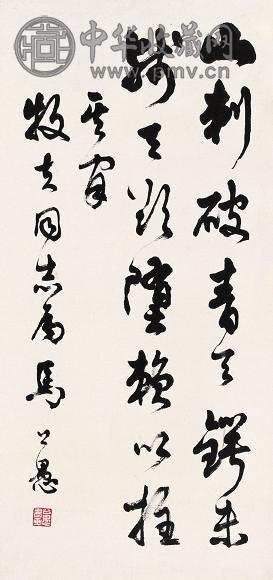 中华收藏网
www.pmv.cn
山刺破青天锷未
残天欲堕赖以拄
其间
牧之同志属马公愚